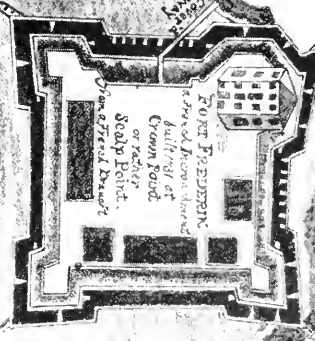 Coverd
Way
FORT FREDERIK
a French Incroachment
built 1731 at
Crown Point
or rather
Scalp Point.
from a French Draught